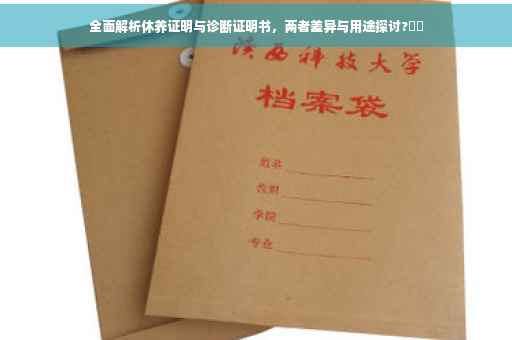 全面解析休养证明与诊断证明书，两者差异与用途探讨？
陕西科技大学
档案袋
姓名
学院
专业